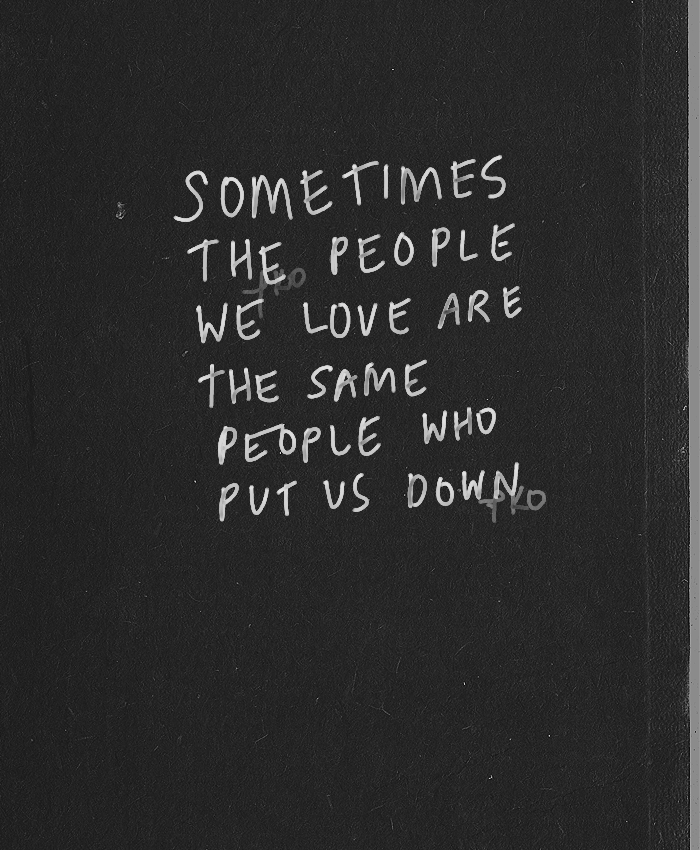 SOMETIMES
THE PEOPLE
TKO
WE LOVE ARE
THE SAME
PEOPLE WHO
PUT US DOWN
TKO